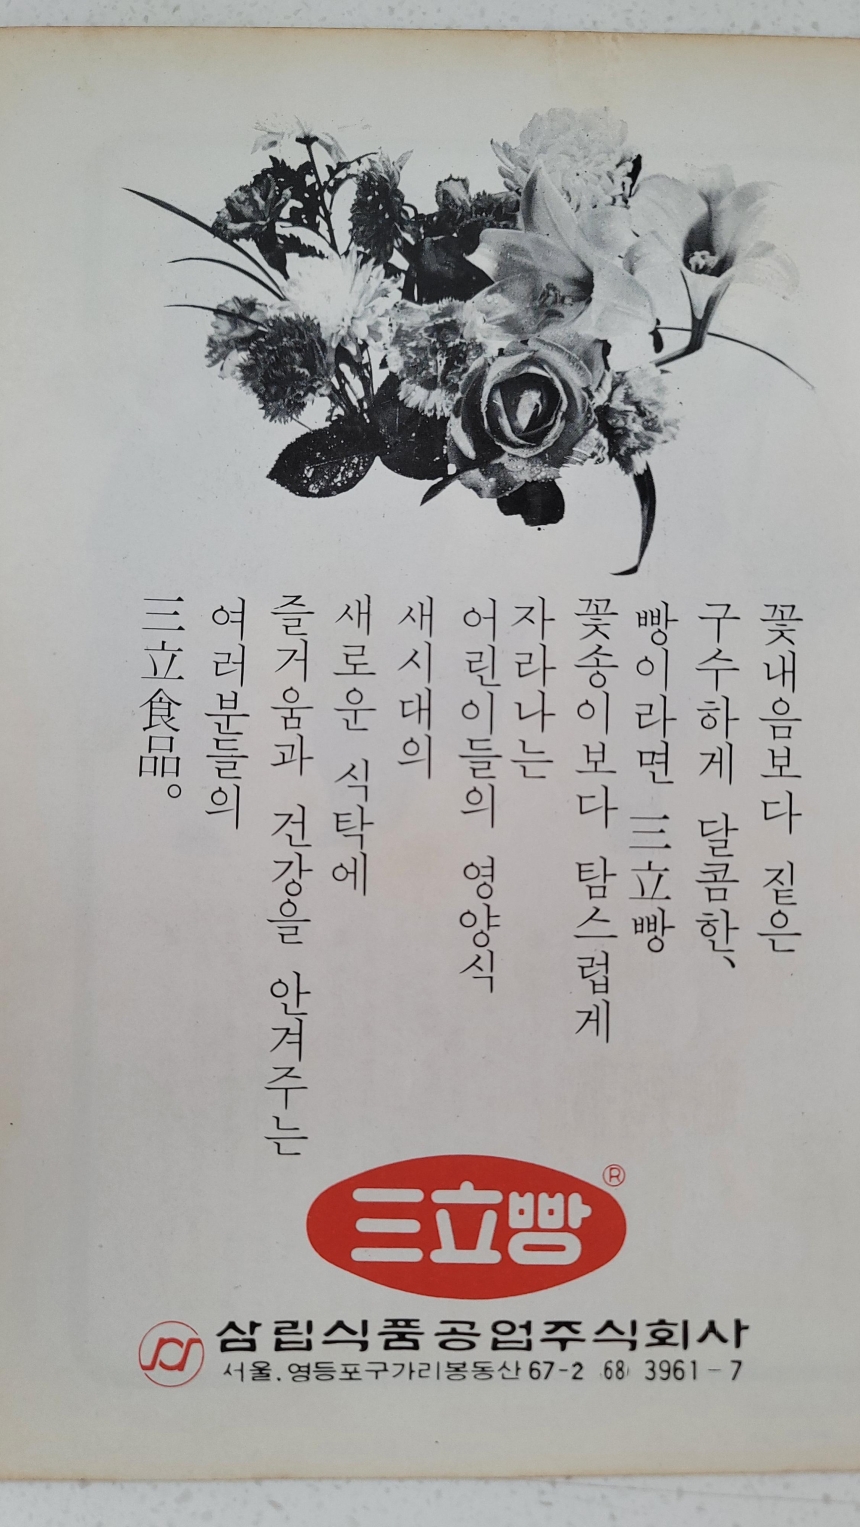 꽃내음보다 짙은
구수하게 달콤한、
빵이라면 三立빵
꽃송이보다 탐스럽게
자라나는
어린이들의 영양식
새시대의
새로운 식탁에
즐거움과 건강을 안겨주는
여러분들의
三立食品。
三立빵®
삼립식품공업주식회사
서울.영등포구가리봉동산67-2 (68) 3961-7